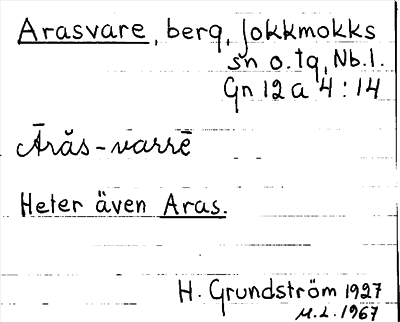 Arasvare, berg, Jokkmokks
sn o. tg, Nb. l.
Gn 12 a 4 : 14
Āră̄s-varrē
Heter även Aras.
H. Grundström 1927
M.L. 1967